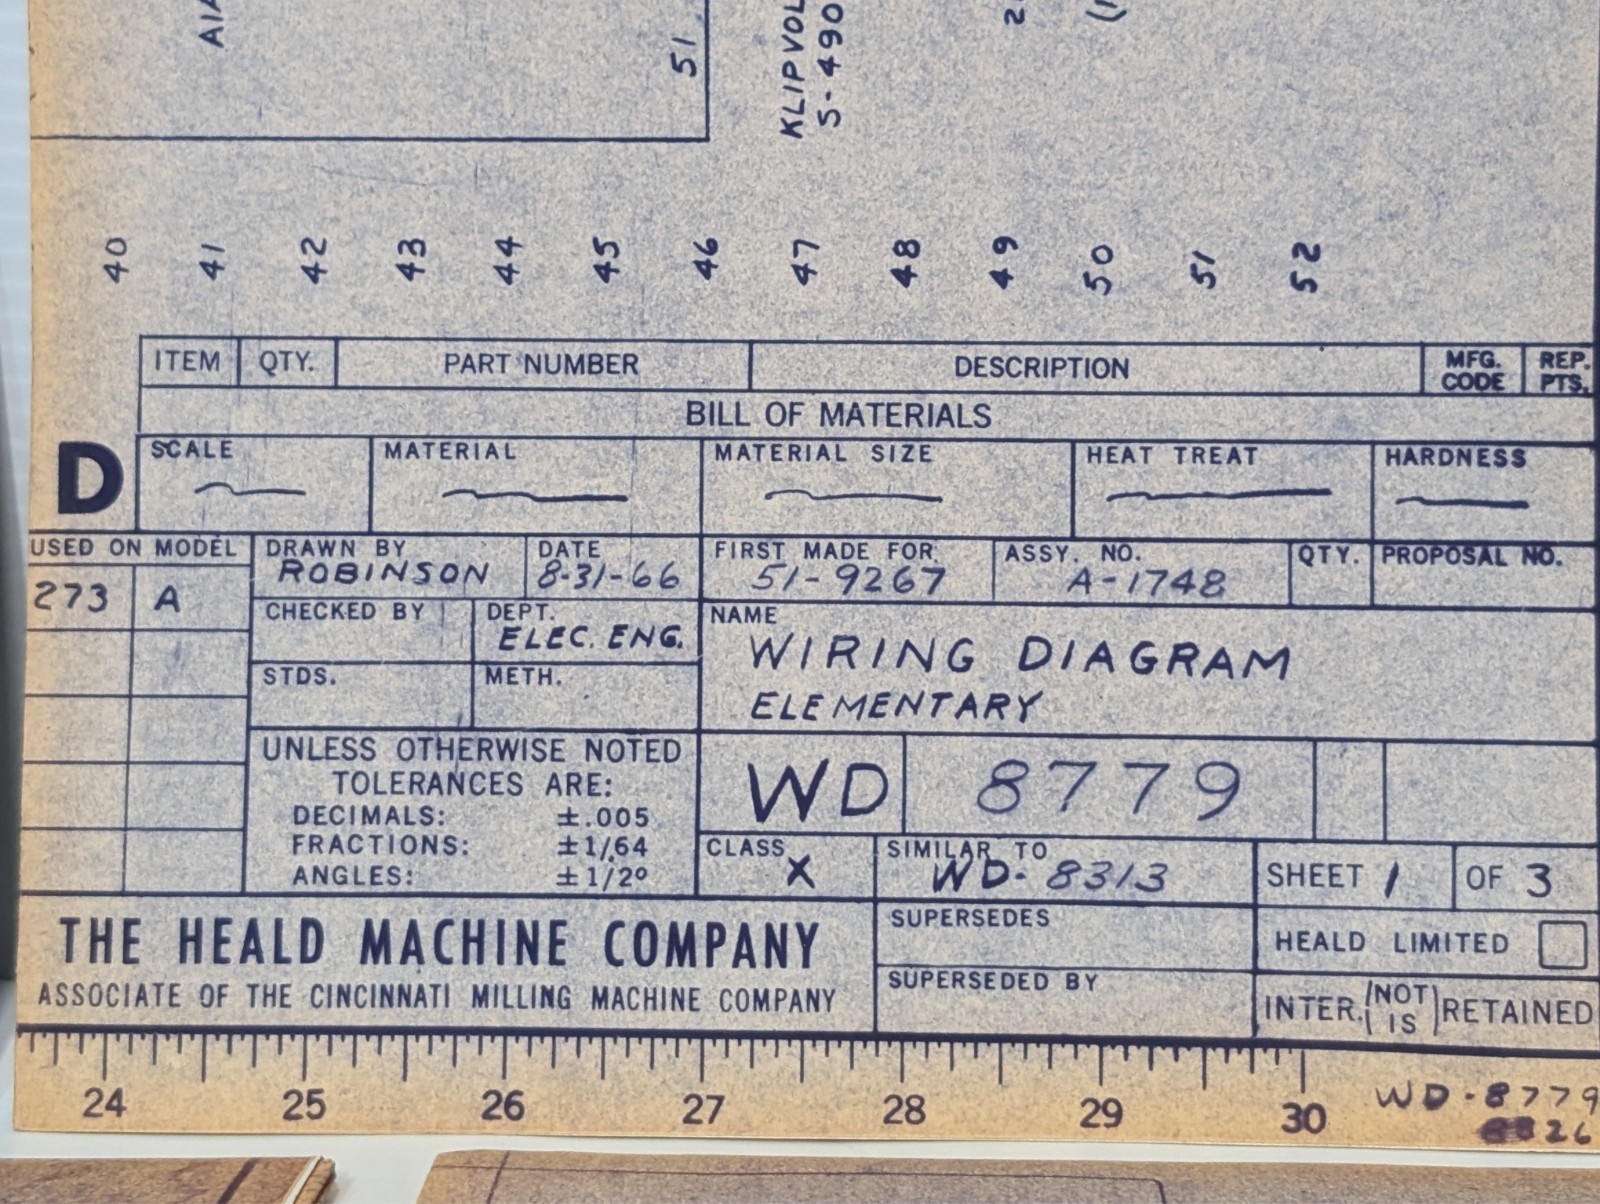 51
40 41 42 43 44 45 46 47 48 49 50 51 52
ITEM QTY. PART NUMBER DESCRIPTION MFG. CODE REP. PTS.
BILL OF MATERIALS
D
SCALE MATERIAL MATERIAL SIZE HEAT TREAT HARDNESS
USED ON MODEL
273 A
DRAWN BY
ROBINSON
DATE
8-31-66
FIRST MADE FOR
51-9267
ASSY. NO.
A-1748
QTY.
PROPOSAL NO.
CHECKED BY
DEPT.
ELEC. ENG.
STDS.
METH.
NAME
WIRING DIAGRAM
ELEMENTARY
UNLESS OTHERWISE NOTED
TOLERANCES ARE:
DECIMALS: ±.005
FRACTIONS: ±1/64
ANGLES: ±1/2°
WD 8779
CLASS
X
SIMILAR TO
WD-8313
SHEET 1 OF 3
THE HEALD MACHINE COMPANY
ASSOCIATE OF THE CINCINNATI MILLING MACHINE COMPANY
SUPERSEDES
SUPERSEDED BY
HEALD LIMITED
INTER. (NOT IS) RETAINED
24 25 26 27 28 29 30
WD-8779
26